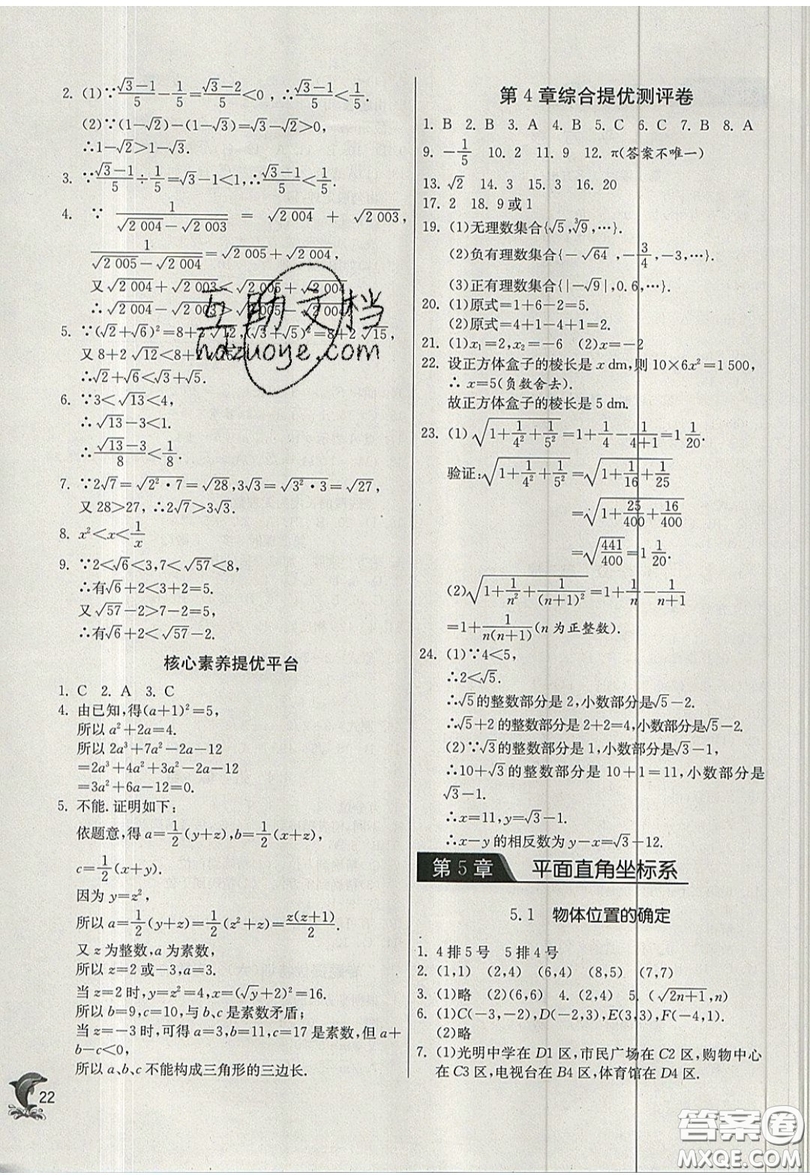 2. (1)∵(√3-1)/5-1/5=(√3-2)/5<0，∴(√3-1)/5<1/5.
(2)∵(1-√2)-(1-√3)=√3-√2>0，
∴1-√2>1-√3.
3. ∵(√3-1)/5÷1/5=√3-1<1，∴(√3-1)/5<1/5.
4. ∵ 1/(√2 004-√2 003) = √2 004 + √2 003，
1/(√2 005-√2 004)=√2 005+√2 004，
又√2 004+√2 003<√2 005+√2 004，
∴√2 004-√2 003>√2 005-√2 004.
5. ∵(√2+√6)²=8+2√12，(√3+√5)²=8+2√15，
又 8+2√12<8+2√15，
∴√2+√6<√3+√5.
6. ∵3<√13<4，
∴√13-3<1.
∴(√13-3)/8<1/8.
7. ∵2√7=√(2²·7)=√28，3√3=√(3²·3)=√27，
又 28>27，∴2√7>3√3.
8. x²<x<1/x
9. ∵2<√6<3，7<√57<8，
∴有√6+2<3+2=5.
又√57-2>7-2=5，
∴有√6+2<√57-2.
核心素养提优平台
1. C 2. A 3. C
4. 由已知，得(a+1)²=5，
所以 a²+2a=4.
所以 2a³+7a²-2a-12
=2a³+4a²+3a²-2a-12
=3a²+6a-12=0.
5. 不能.证明如下：
依题意，得 a=1/2(y+z)，b=1/2(x+z)，
c=1/2(x+y).
因为 y=z²，
所以 a=1/2(y+z)=1/2(z²+z)=z(z+1)/2.
又 z 为整数，a 为素数，
所以 z=2 或-3，a=3.
当 z=2 时，y=z²=4，x=(√y+z)²=16.
所以 b=9，c=10，与 b、c 是素数矛盾；
当 z=-3 时，可得 a=3，b=11，c=17 是素数，但 a+
b<c，
所以 a、b、c 不能构成三角形的三边长.
22
第 4 章综合提优测评卷
1. B 2. B 3. A 4. B 5. C 6. C 7. B 8. A
9. -1/5 10. 2 11. 9 12. π(答案不唯一)
13. √2 14. 3 15. 3 16. 20
17. 2 18. 9 或 1
19. (1)无理数集合{√5，³√9，…}.
(2)负有理数集合{-√64，-3/4，-3，…}.
(3)正有理数集合{|-√9|，0.6，…}.
20. (1)原式=1+6-2=5.
(2)原式=4+1-4+1=2.
21. (1)x₁=2，x₂=-6 (2)x=-2
22. 设正方体盒子的棱长是 x dm，则 10×6x²=1 500，
∴ x=5(负数舍去).
故正方体盒子的棱长是 5 dm.
23. (1) √(1+1/4²+1/5²)=1+1/4-1/(4+1)=1 1/20.
验证：√(1+1/4²+1/5²)=√(1+1/16+1/25)
=√(1+25/400+16/400)
=√(441/400)=1 1/20.
(2)√(1+1/n²+1/(n+1)²)=1+1/n-1/(n+1)
=1+1/(n(n+1))(n 为正整数).
24. (1)∵4<5，
∴2<√5.
∴√5的整数部分是 2，小数部分是√5-2.
∴√5+2的整数部分是 2+2=4，小数部分是√5-2.
(2)∵√3的整数部分是 1，小数部分是√3-1，
∴10+√3的整数部分是 10+1=11，小数部分是
√3-1.
∴x=11，y=√3-1.
∴x-y 的相反数为 y-x=√3-12.
第 5 章 平面直角坐标系
5.1 物体位置的确定
1. 4 排 5 号 5 排 4 号
2. (1,1) (2,4) (6,4) (8,5) (7,7)
3. (1)略 (2)(6,6) 4. (2,4) 5. (√(2n+1),n)
6. (1)C(-3,-2)，D(-2,3)，E(3,3)，F(4,-1)
(2)略
7. (1)光明中学在 D1 区，市民广场在 C2 区，购物中心
在 C3 区，电视台在 B4 区，体育馆在 D4 区.
互助文档
hdzuoye.com
答案卷
MXQE.COM